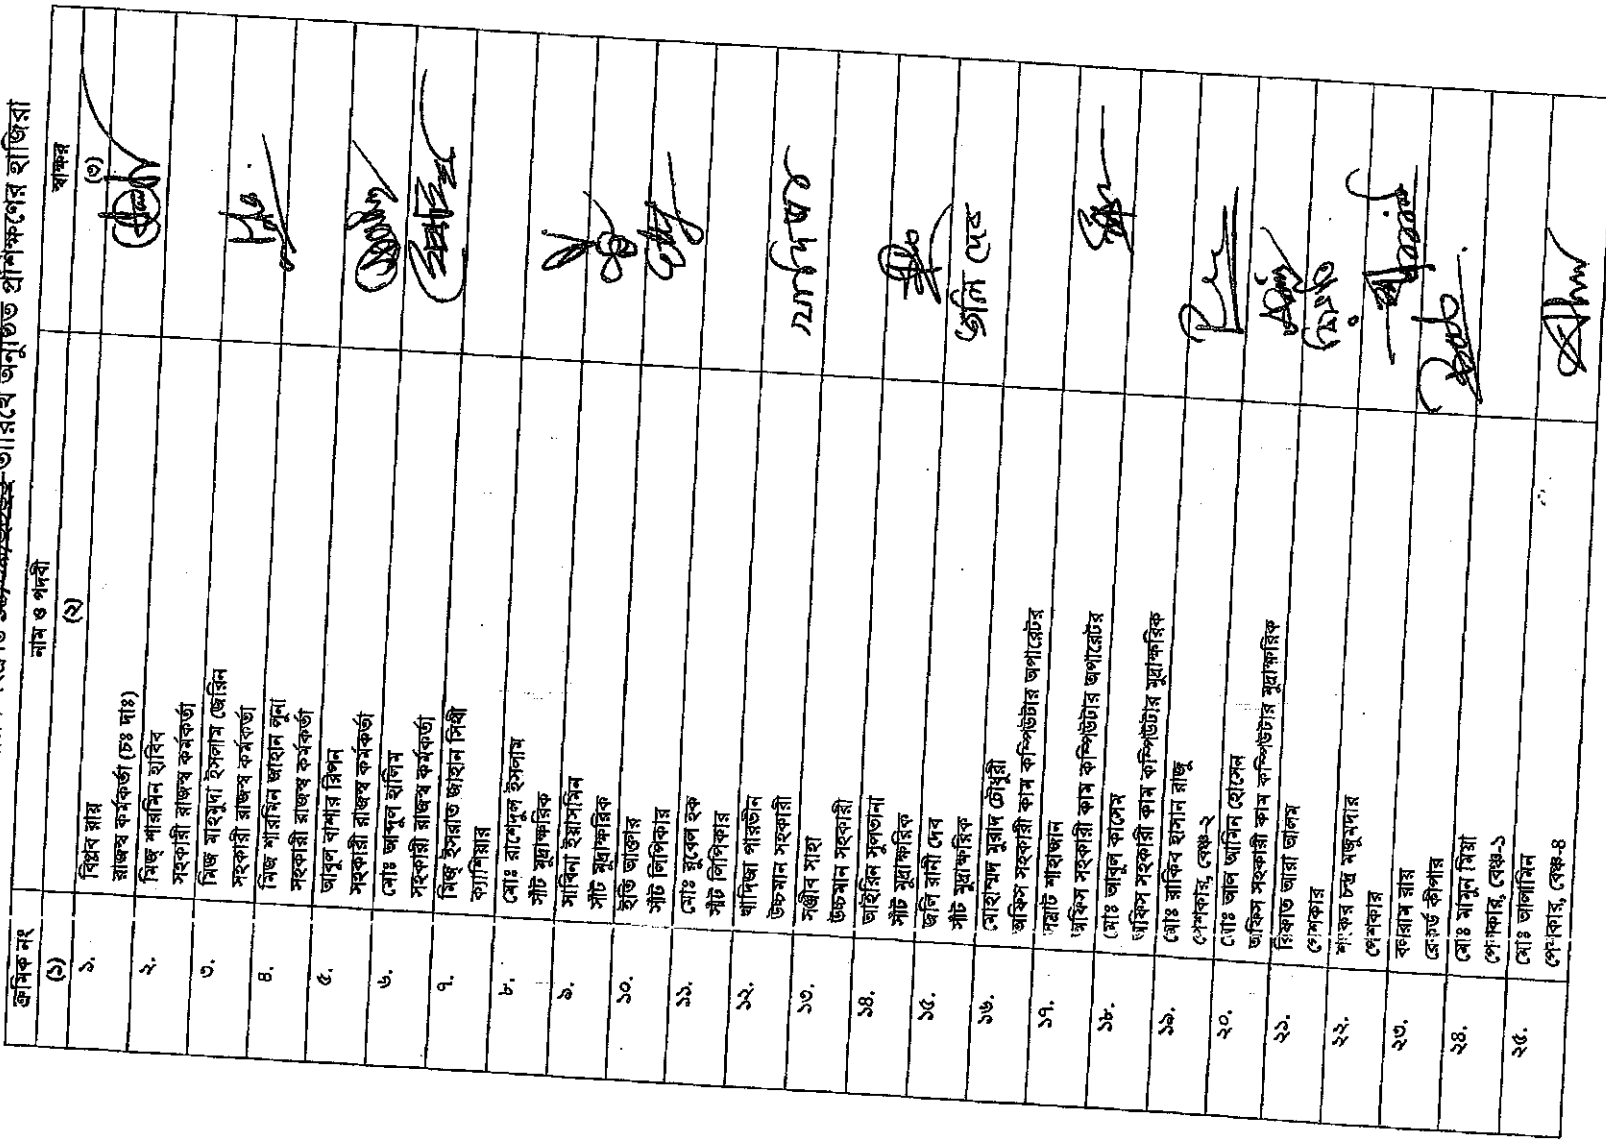 তারিখে অনুষ্ঠিত প্রশিক্ষণের হাজিরা
ক্রমিক নং নাম ও পদবী স্বাক্ষর
(১) (২) (৩)
১. বিপ্লব রায়
রাজস্ব কর্মকর্তা (চঃ দাঃ)
২. মিজ্ শারমিন হাবিব
সহকারী রাজস্ব কর্মকর্তা
৩. মিজ মাহমুদা ইসলাম জেরিন
সহকারী রাজস্ব কর্মকর্তা
৪. মিজ শারমিন জাহান লুনা
সহকারী রাজস্ব কর্মকর্তা
৫. আবুল বাশার রিপন
সহকারী রাজস্ব কর্মকর্তা
৬. মোঃ আব্দুল হালিম
সহকারী রাজস্ব কর্মকর্তা
৭. মিজ্ ইসরাত জাহান সিথী
ক্যাশিয়ার
৮. মোঃ রাশেদুল ইসলাম
সাঁট মুদ্রাক্ষরিক
৯. সাবিনা ইয়াসমিন
সাঁট মুদ্রাক্ষরিক
১০. ইতি আক্তার
সাঁট লিপিকার
১১. মোঃ রুবেল হক
সাঁট লিপিকার
১২. খাদিজা পারভীন
উচ্চমান সহকারী
১৩. সঞ্জীব সাহা
উচ্চমান সহকারী
১৪. আইরিন সুলতানা
সাঁট মুদ্রাক্ষরিক
১৫. জলি রানী দেব
সাঁট মুদ্রাক্ষরিক জলি দেব
১৬. মোহাম্মদ মুরাদ চৌধুরী
অফিস সহকারী কাম কম্পিউটার অপারেটর
১৭. সম্রাট শাহাজান
অফিস সহকারী কাম কম্পিউটার অপারেটর
১৮. মোঃ আবুল কাসেম
অফিস সহকারী কাম কম্পিউটার মুদ্রাক্ষরিক
১৯. মোঃ রাকিব হাসান রাজু
পেশকার, বেঞ্চ-২
২০. মোঃ আল আমিন হোসেন
অফিস সহকারী কাম কম্পিউটার মুদ্রাক্ষরিক
২১. রিফাত আরা আলম
পেশকার
২২. শংকর চন্দ্র মজুমদার
পেশকার
২৩. বলরাম রায়
রেকর্ড কীপার
২৪. মোঃ মামুন মিয়া
পেশকার, বেঞ্চ-১
২৫. মোঃ আলামিন
পেশকার, বেঞ্চ-৪